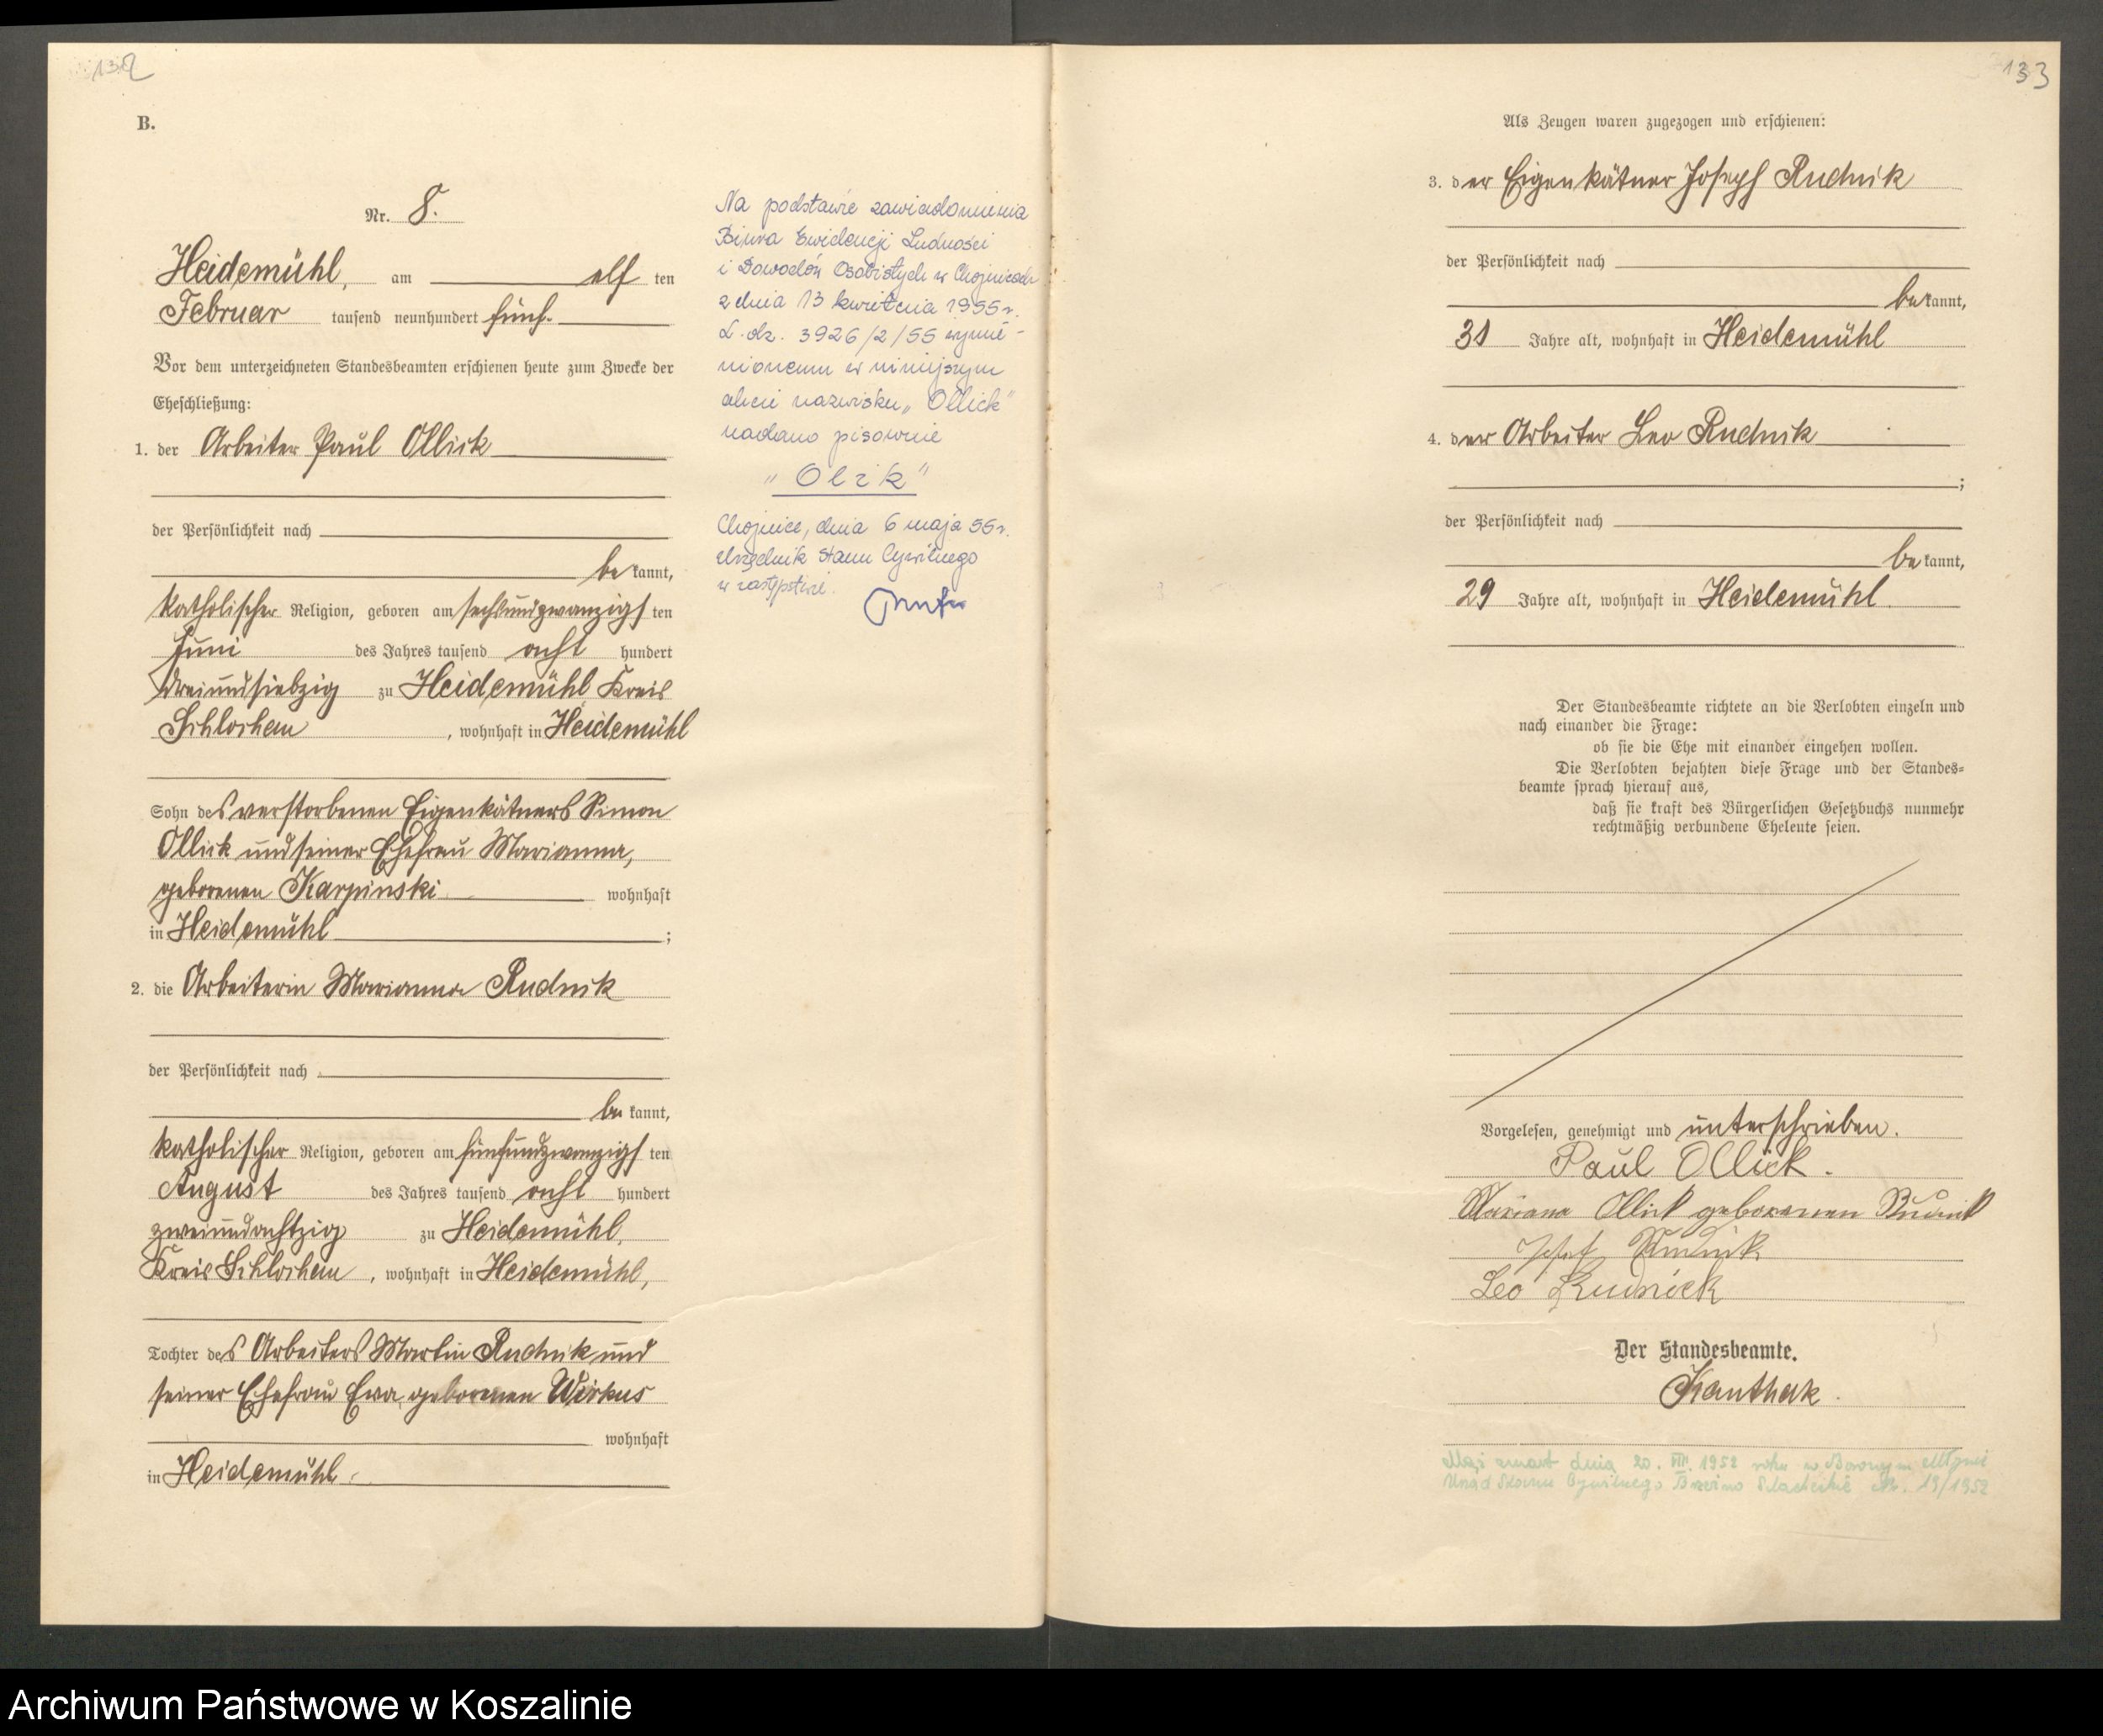 132
B.
Nr. 8.
Heidemühl, am elf ten
Februar tausend neunhundert fünf.
Vor dem unterzeichneten Standesbeamten erschienen heute zum Zwecke der
Eheschließung:
1. der Arbeiter Paul Ollick
der Persönlichkeit nach
be kannt,
katholischer Religion, geboren am sechsundzwanzigs ten
Juni des Jahres tausend acht hundert
dreiundsiebzig zu Heidemühl Kreis
Schlochau, wohnhaft in Heidemühl
Sohn des verstorbenen Eigenkätners Simon
Ollick und seiner Ehefrau Marianna,
geborenen Karpinski wohnhaft
in Heidemühl ;
2. die Arbeiterin Marianna Rudnik
der Persönlichkeit nach
be kannt,
katholischer Religion, geboren am fünfundzwanzigs ten
August des Jahres tausend acht hundert
zweiundachtzig zu Heidemühl,
Kreis Schlochau, wohnhaft in Heidemühl,
Tochter des Arbeiters Martin Rudnik und
seiner Ehefrau Eva, geborenen Wirkus
wohnhaft
in Heidemühl.
Na podstawie zawiadomienia
Biura Ewidencji Ludności
i Dowodów Osobistych w Chojnicach
z dnia 13 kwietnia 1955 r.
L. dz. 3926/2/55 wymie-
nionemu w niniejszym
akcie nazwisku „Ollick"
nadano pisownię
"Olik"
Chojnice, dnia 6 maja 55 r.
Urzędnik Stanu Cywilnego
w zastępstwie.
133
Als Zeugen waren zugezogen und erschienen:
3. der Eigenkätner Joseph Rudnik
der Persönlichkeit nach
be kannt,
31 Jahre alt, wohnhaft in Heidemühl
4. der Arbeiter Leo Rudnik
;
der Persönlichkeit nach
be kannt,
29 Jahre alt, wohnhaft in Heidemühl.
Der Standesbeamte richtete an die Verlobten einzeln und
nach einander die Frage:
ob sie die Ehe mit einander eingehen wollen.
Die Verlobten bejahten diese Frage und der Standes-
beamte sprach hierauf aus,
daß sie kraft des Bürgerlichen Gesetzbuchs nunmehr
rechtmäßig verbundene Eheleute seien.
Vorgelesen, genehmigt und unterschrieben.
Paul Ollick.
Mariana Ollick geborenen Rudnik
Josef Rudnik
Leo Rudnick
Der Standesbeamte.
Kanthak.
Mąż zmarł dnia 20. III 1952 roku w Borowym Młynie
Urząd Stanu Cywilnego Brzeźno Szlacheckie Nr. 19/1952
Archiwum Państwowe w Koszalinie